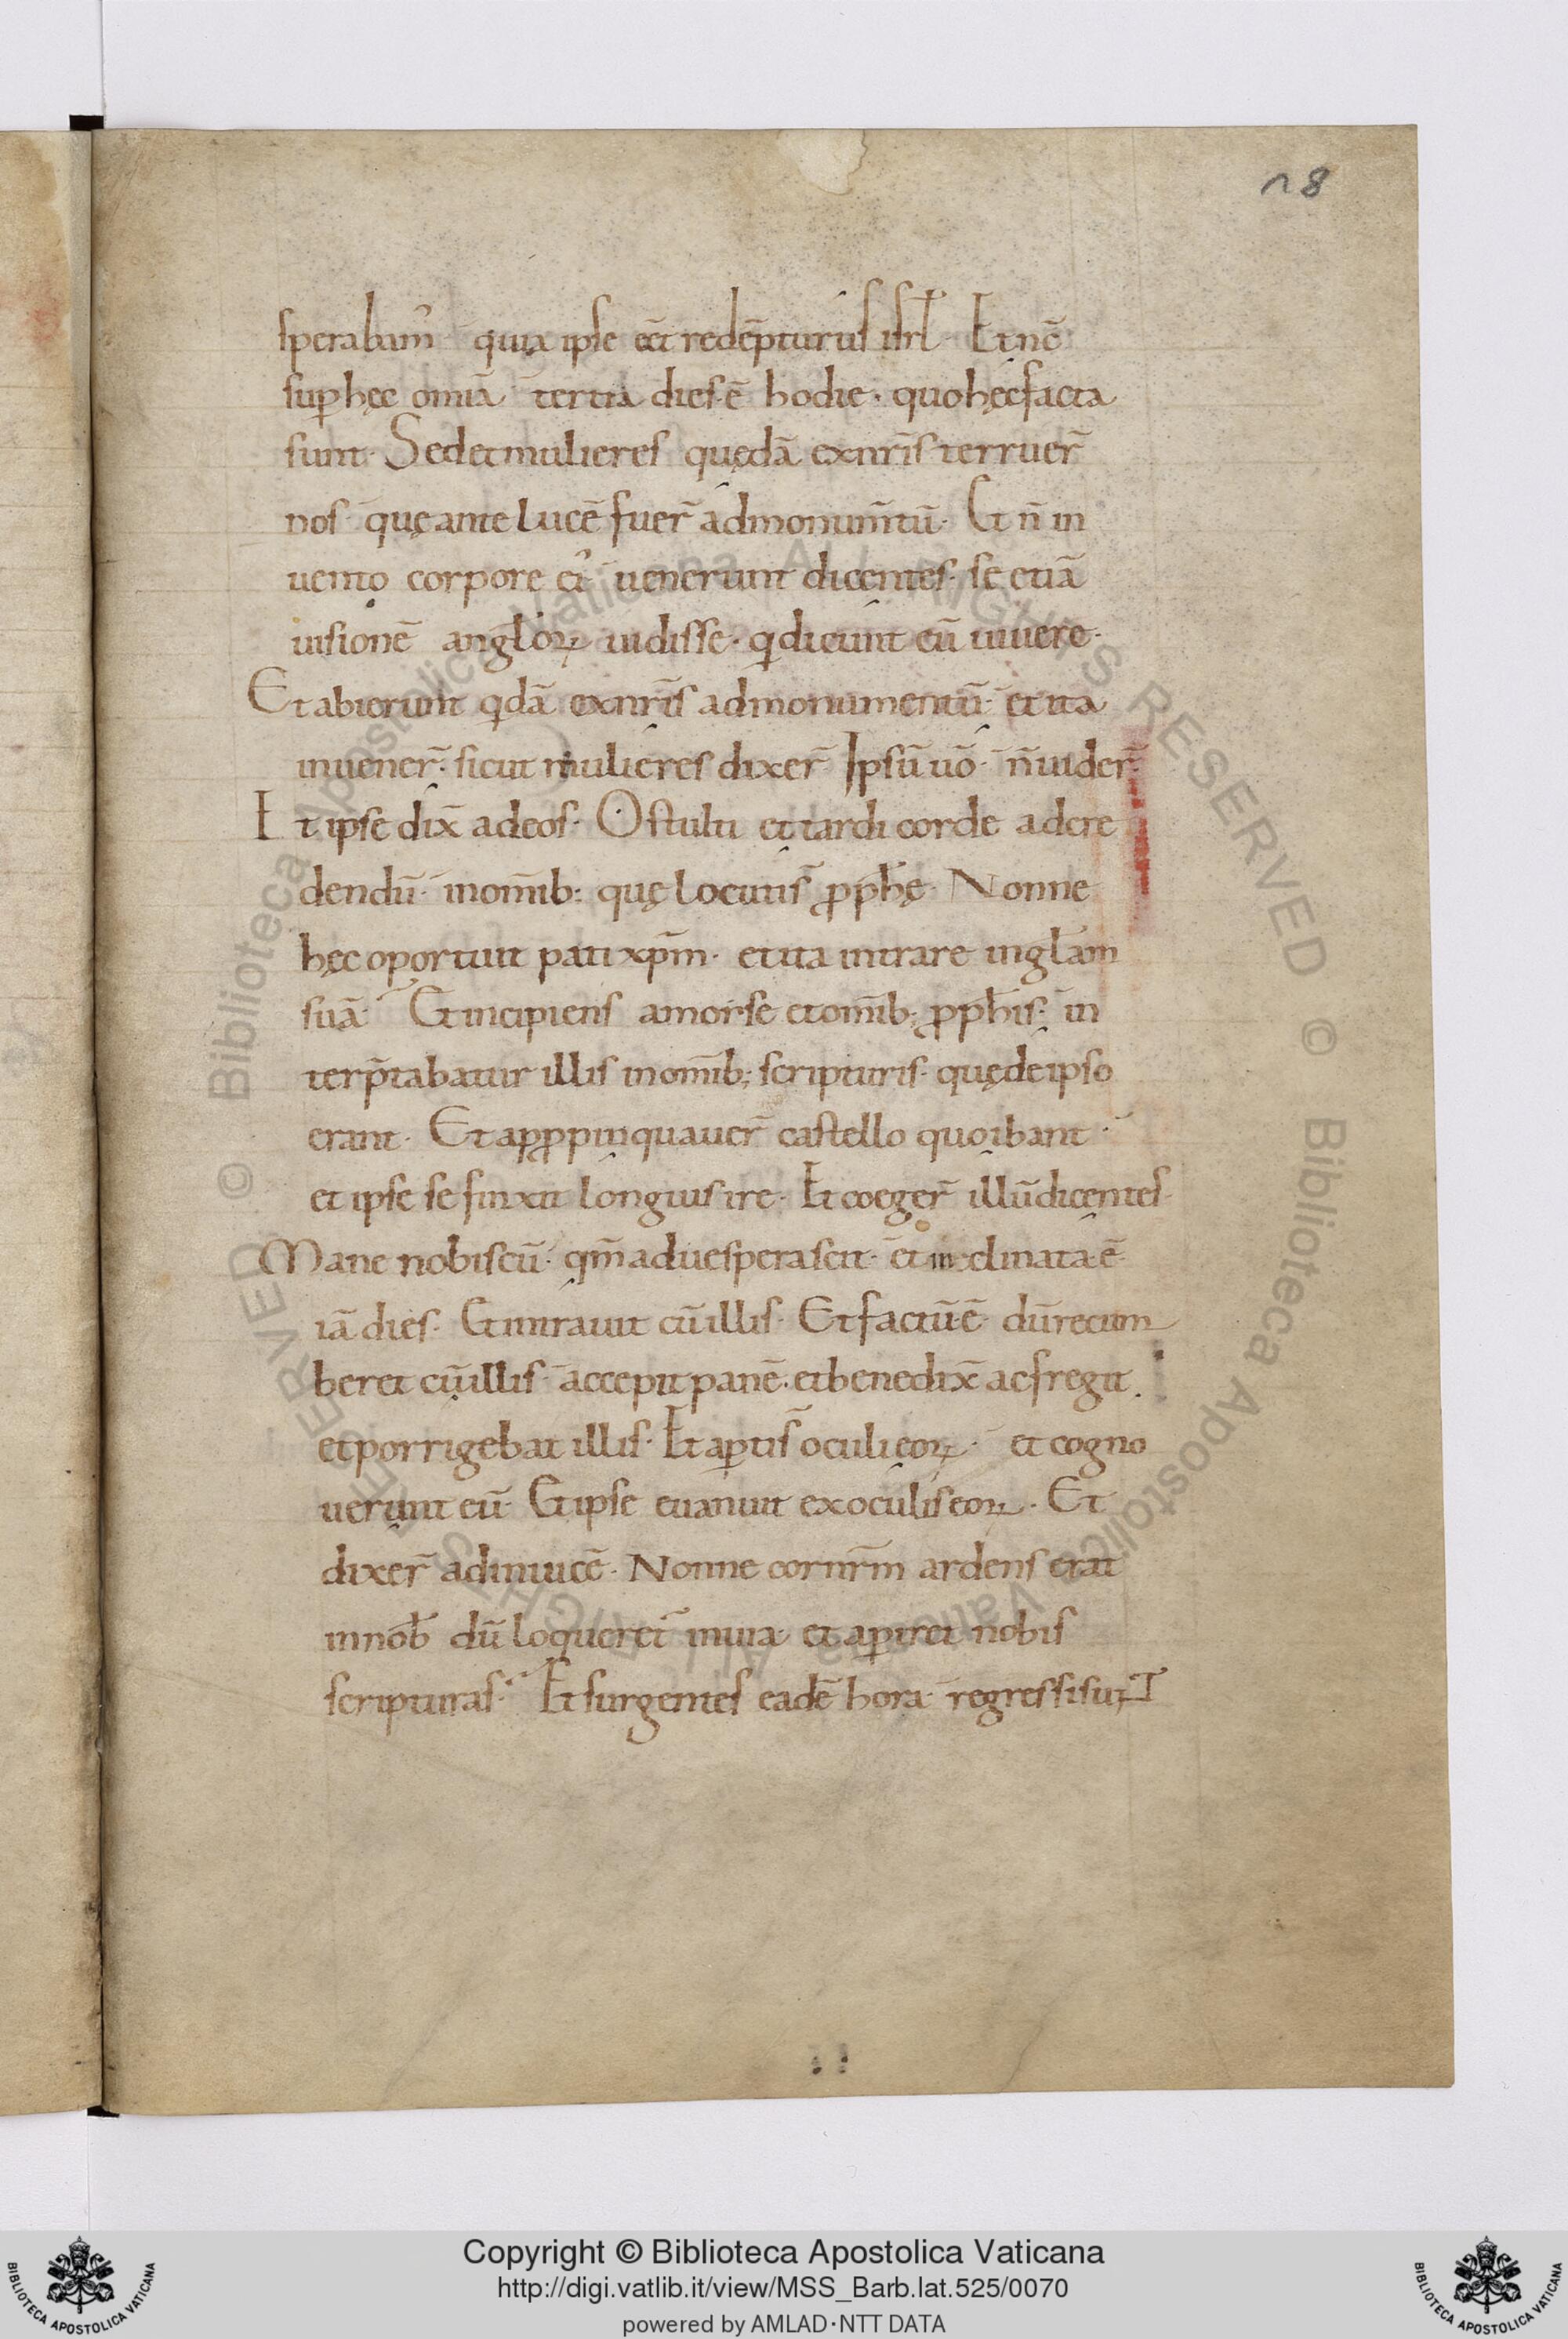 28
sperabam᾽ quia ipse eet redēpturus isrl̄. Et nc̄
sup hęc omīa tertia dies ē hodie. quo hęc facta
sunt. Sed et mulieres quędā ex nr̄is terruer̄
nos quę ante lucē fuer̄ ad monum̄tū. Et n̄ in
uento corpore ei᾽ uenerunt dicentes. se etiā
uisionē angloꝝ uidisse. q dicunt eū uiuere.
Et abierunt qdā ex nr̄is ad monumentū. et ita
inuener̄. sicut mulieres dixer̄. Ipsū uō. n̄ uider̄.
Et ipse dix̄ ad eos. O stulti et tardi corde ad cre
dendū. in om̄ib: quę locuti s̄ ꝓph̄ę. Nonne
hęc oportuit pati xp̄m. et ita intrare in gl̄am
suā. Et incipiens a morse et om̄ib; ꝓph̄is. in
terp̄tabatur illis in om̄ib; scripturis. quę de ipso
erant. Et apꝓpinquauer̄ castello quo ibant.
et ipse se finxit longius ire. Et coeger̄ illū dicentes
Mane nobiscū. qm̄ aduesperascit. et inclinata ē
iā dies. Et intrauit cū illis. Et factū ē dū recum
beret cū illis. accepit panē. et benedix̄ ac fregit.
et porrigebat illis. Et apti s̄ oculi eoꝝ. et cogno
uerunt eū. Et ipse euanuit ex oculis eoꝝ. Et
dixer̄ ad inuicē. Nonne cor nr̄m ardens erat
in nob̄ dū loqueret᷑ in uia. et apiret nobis
scripturas. Et surgentes eadē hora regressi sunt
Copyright © Biblioteca Apostolica Vaticana
http://digi.vatlib.it/view/MSS_Barb.lat.525/0070
powered by AMLAD·NTT DATA
BIBLIOTECA APOSTOLICA VATICANA
BIBLIOTECA APOSTOLICA VATICANA
© Biblioteca Apostolica Vaticana ALL RIGHTS RESERVED © Biblioteca Apostolica Vaticana ALL RIGHTS RESERVED